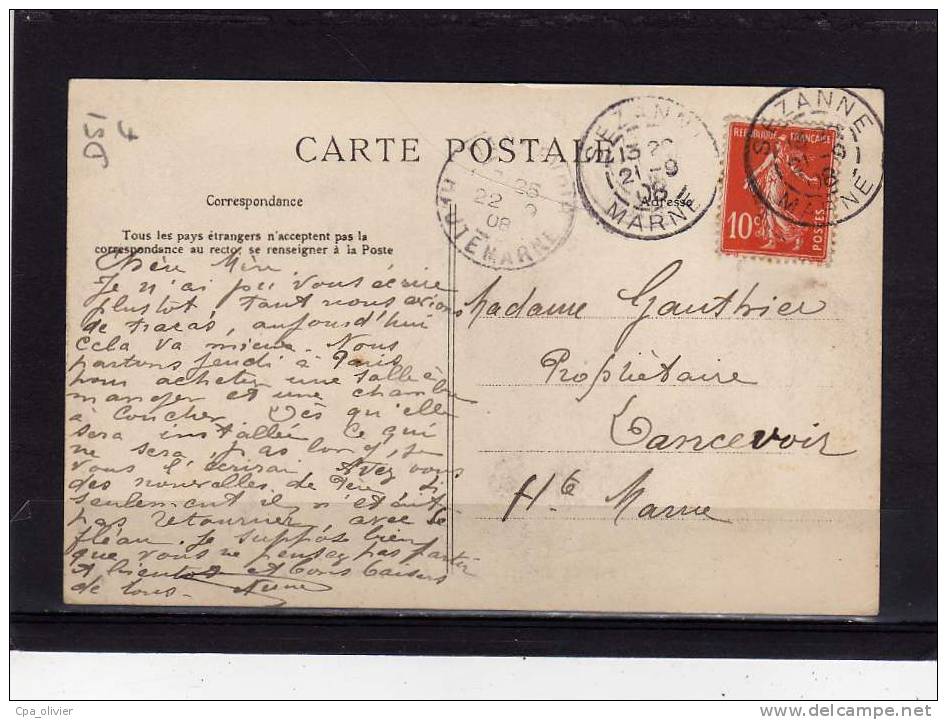 DSI
4
CARTE POSTALE
SEZANNE
13 20
21 - 9
08
MARNE
SEZANNE
21 - 9
08
MARNE
REPUBLIQUE FRANÇAISE
10c
POSTES
26
22
08
HAUTE MARNE
Correspondance
Adresse
Tous les pays étrangers n'acceptent pas la
correspondance au recto, se renseigner à la Poste
Chère Mère
Je n'ai pu vous écrire
plustôt, tant nous avions
de tracas, aujourd'hui
cela va mieux. Nous
partons jeudi à Paris
pour acheter une salle à
manger et une chambre
à coucher. Dès qu'elle
sera installée ce qui
ne sera pas long, je
vous l'écrirai. Avez vous
des nouvelles de
seulement il n'était
pas retourner, avec le
fléau. Je suppose bien
que vous ne pensez pas partir
A bientot et bons baisers
de tous.
Madame Gauthier
Propriètaire
Lancevoir
Hte Marne
Cpa_olivier
delcampe.net